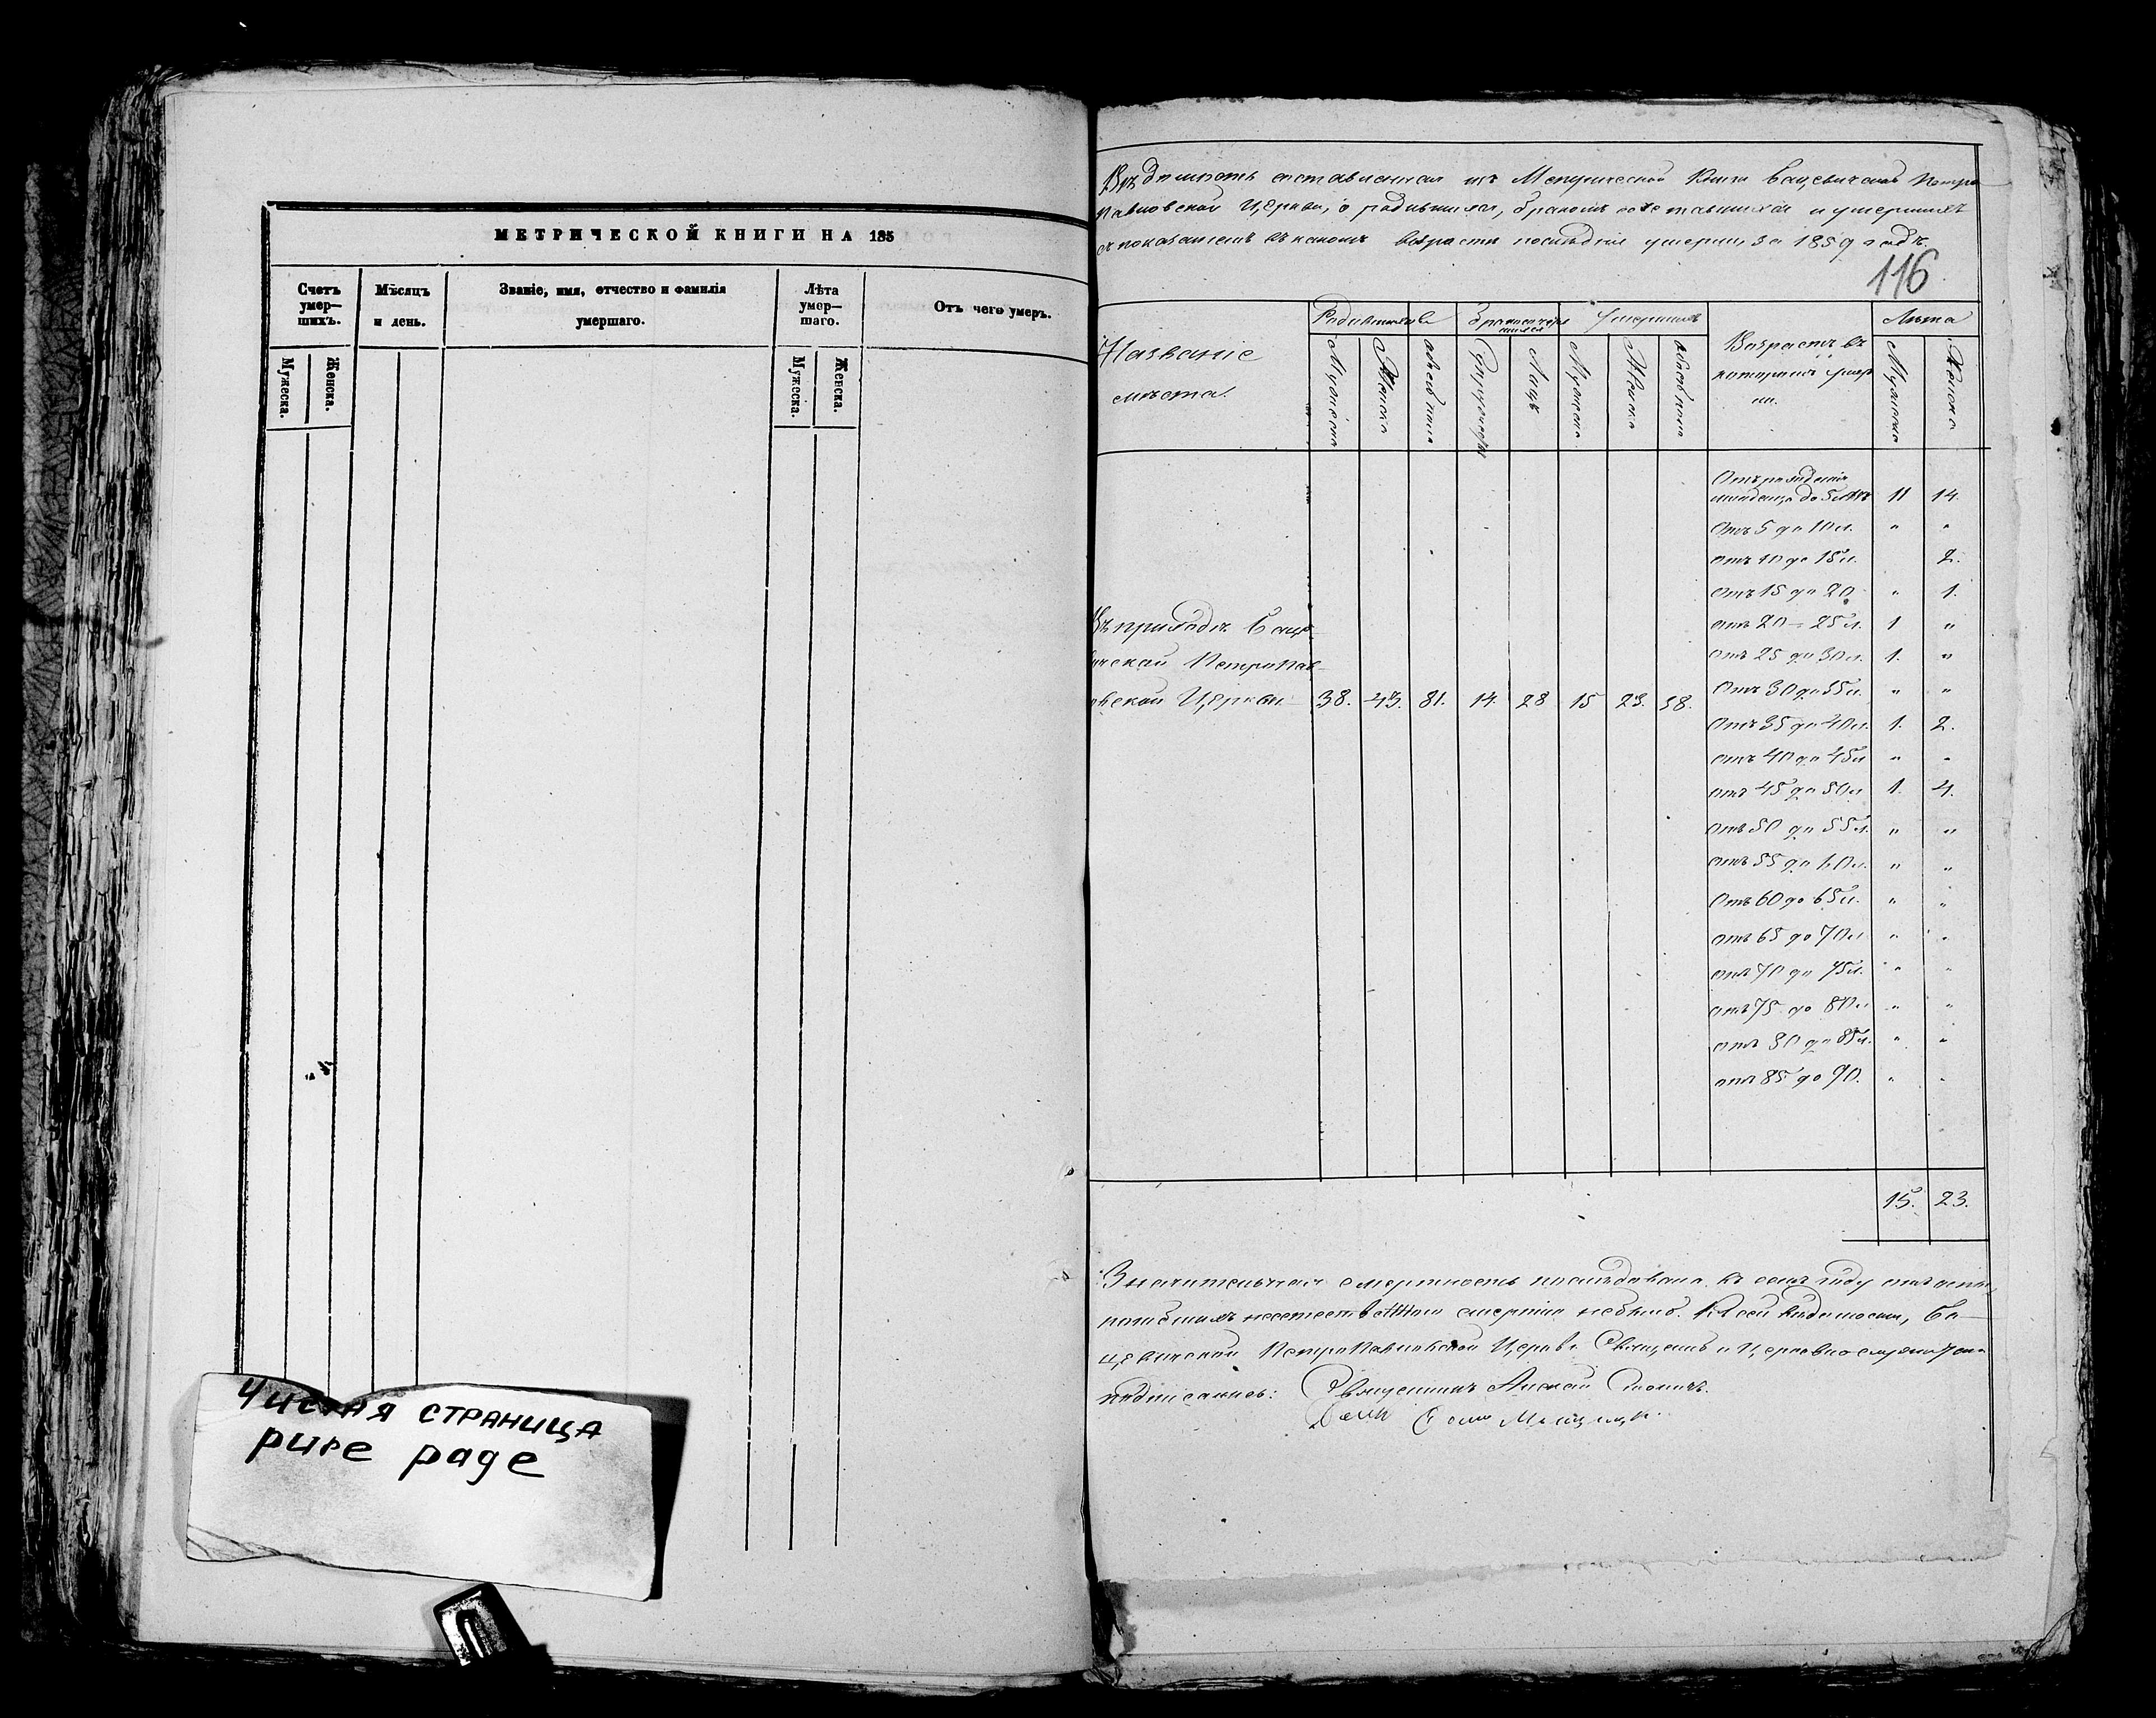 МЕТРИЧЕСКОЙ КНИГИ НА 185
Счетъ умер— шихъ.
Мѣсяцъ и день.
Званіе, имя, отчество и фамилія умершаго.
Лѣта умер— шаго.
Отъ чего умеръ.
Мужеска. Женска.
Мужеска. Женска.
Чистая страница
pure page
Вѣдомость составленная изъ Метрической Книги Бацевичской Петро
павловской Церкви, о родившихся, бракомъ сочетавшихся и умершихъ
съ показаніемъ въ какомъ возрастѣ послѣдніе умерли, за 1859 годъ.
116
Названіе мѣста.
Родившихся
Умершихъ
Возрастъ въ которомъ умер ли.
Лѣта
Мужеска Женска обоего пола
Лицъ
Мужеска Женска обоего пола
Мужеска Женска
Отъ рожденія
младенца до 5 лѣтъ 11 14.
Отъ 5 до 10 л. " "
отъ 10 до 15 л. 2.
отъ 15 до 20 " 1.
отъ 20 – 25 л. 1 "
отъ 25 до 30 л. 1. "
Отъ 30 до 35 л. " "
Отъ 35 до 40 л. 1. 2.
отъ 40 до 45 л " "
отъ 45 до 50 л 1. 4.
отъ 50 до 55 л. " "
отъ 55 до 60 л. " "
Отъ 60 до 65 л. " "
отъ 65 до 70 л " "
отъ 70 до 75 л. " "
отъ 75 до 80 л " "
отъ 80 до 85 л. " "
отъ 85 до 90. " "
Въ приходѣ Баце
вичской Петропав
ловской Церкви 38. 43. 81. 14. 28 15 23. 38.
15. 23.
Значительная смертность послѣдовала въ семъ году отъ оспы,
погибшихъ неестественною смертію небыло. Къ сей вѣдомости, Ба–
цевичской Петропавловской Церкви Священ и Церковнослужители
подписались: Священникъ Алексей